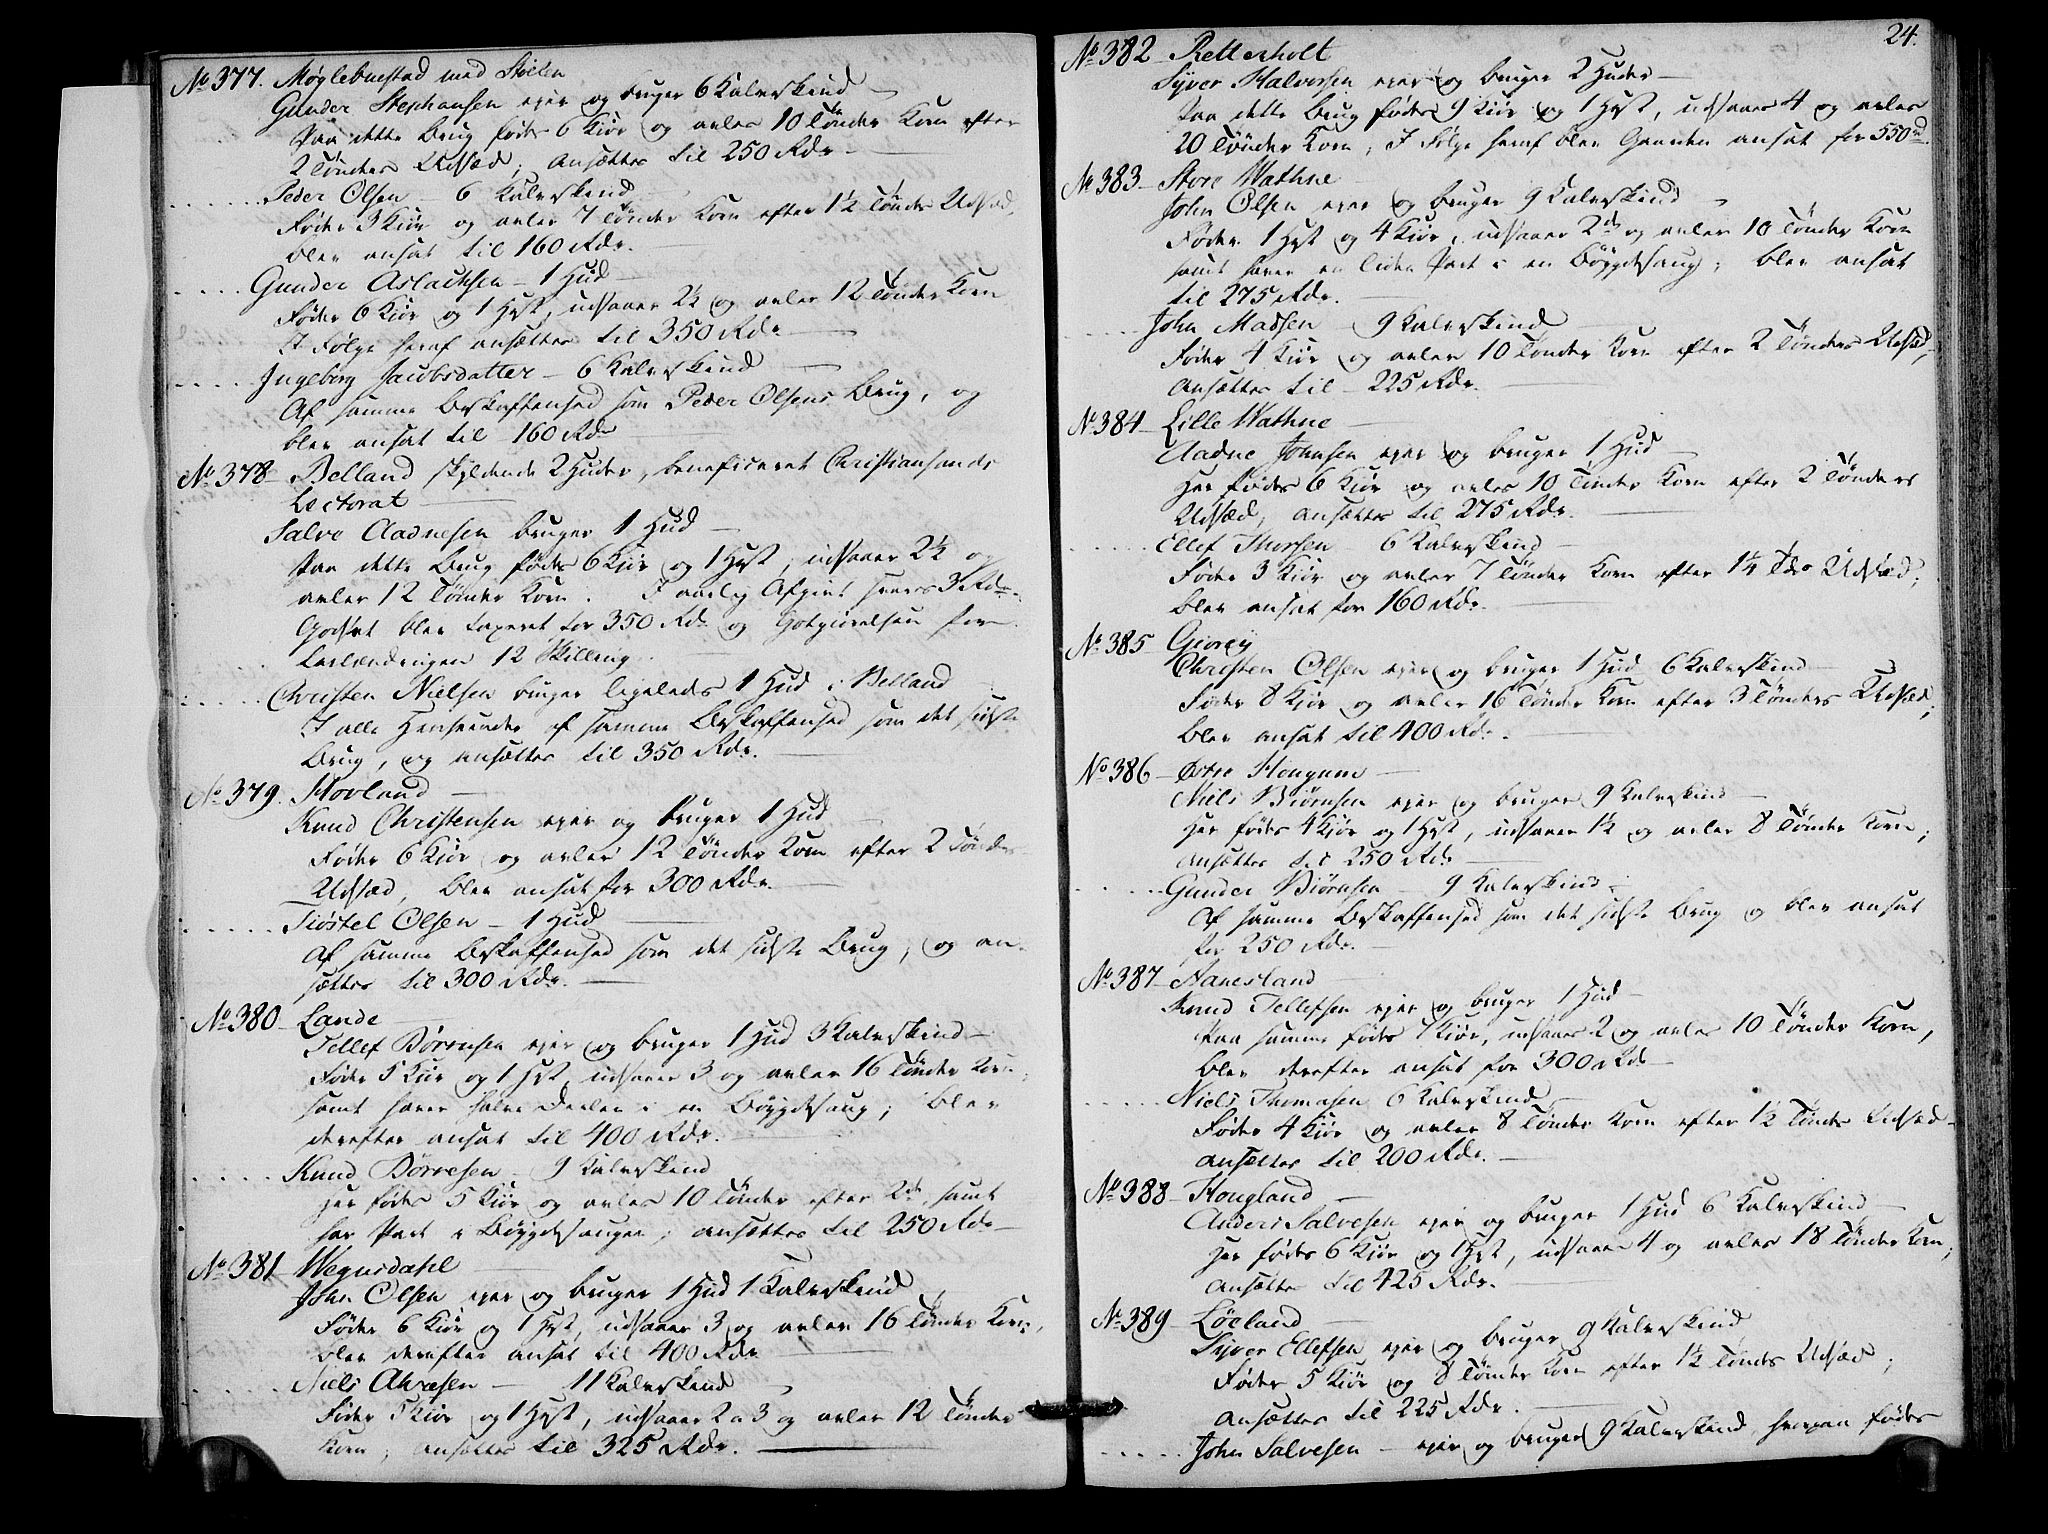 No 377. Møglebuestad med Støelen
Gunder Stephansen ejer og bruger 6 Kalvskind
Paa dette Brug fødes 6 Kiör og avles 10 Tönder Korn efter
2 Tönders Udsæd; ansættes til 250 Rdr
Peder Olsen – 6 Kalvskind
Föder 3 Kiör og avler 7 Tönder Korn efter 1½ Tönders Udsæd,
blev ansat til 160 Rdr.
Gunder Aslachsen – 1 Hud
Föder 6 Kiör og 1 Hest, udsaaer 2½ og avler 12 Tönder Korn
I Følge heraf ansættes til 350 Rdr
Ingeborg Jacobsdatter – 6 Kalvskind
Af samme Beskaffenhed som Peder Olsens Brug, og
blev ansat til 160 Rdr
No 378 – Belland skyldende 2 Huder, beneficeret Christiansands
Lectorat
Salve Aadnesen bruger 1 Hud
Paa dette Brug fødes 6 Kiör og 1 Hest, udsaaer 2½ og
avler 12 Tönder Korn. I aarlig Afgivt svares 3 Rdr.
Godset blev taxeret for 350 Rdr og Godtgiørelsen for
12 Skilling
Christen Nielsen bruger ligeledes 1 Hud i Belland
I alle Henseender af samme Beskaffenhed som det sidste
Brug, og ansættes til 350 Rdr.
No 379. Hovland
Knud Christensen ejer og bruger 1 Hud
Föder 6 Kiör og avler 12 Tönder Korn efter 2 Tönders
Udsæd, blev ansat for 300 Rdr.
Tiöstel Olsen – 1 Hud
Af samme Beskaffenhed som det sidste Brug, og an-
sættes til 300 Rdr.
No 380 – Lande
Tellef Børresen ejer og bruger 1 Hud 3 Kalvskind –
Föder 5 Kiör og 1 Hest, udsaaer 3 og avler 16 Tönder Korn,
samt haver halve Deelen i en Bøygdesaug; blev
derefter ansat til 400 Rdr.
Knud Börresen – 9 Kalvskind
Her fødes 5 Kiör og avles 10 Tönder efter 2de, samt
har Part i Bøygdesaugen; ansættes til 250 Rdr –
No 381 Wegusdahl
John Olsen ejer og bruger 1 Hud 1 Kalvskind
Föder 6 Kiör og 1 Hest, udsaaer 3 og avler 16 Tönder Korn,
blev derefter ansat til 400 Rdr
Niels Olsen – 11 Kalvskind
Föder 5 Kiör og 1 Hest, udsaaer 2 a 3 og avler 12 Tönder
Korn; ansættes til 325 Rdr.
24.
No 382 Retterholt
Syver Halvorsen ejer og bruger 2 Huder –
Paa dette Brug fødes 9 Kiör og 1 Hest, udsaaes 4 og avles
20 Tönder Korn; I Følge heraf blev Gaarden ansat for 550 rd.
No 383 – Store Wathne
John Olsen ejer og bruger 9 Kalvskind
Föder 1 Hest og 4 Kiör, udsaaer 2de og avler 10 Tönder Korn
samt haver en liden Part i en Bøygdesaug; blev ansat
til 275 Rdr.
John Madsen – 9 Kalvskind
Föder 4 Kiör og avler 10 Tönder Korn efter 2 Tönders Udsæd,
ansættes til 225 Rdr.
No 384 – Lille Wathne
Aadne Johnsen ejer og bruger 1 Hud
Her fødes 6 Kiör og avles 10 Tönder Korn efter 2 Tönders
Udsæd, ansættes til 275 Rdr.
Ellef Thorsen – 6 Kalvskind
Föder 3 Kiör og avler 7 Tönder Korn efter 1¼ Tdr Udsæd,
blev ansat for 160 Rdr.
No 385 Giorøy
Christen Olsen ejer og bruger 1 Hud 6 Kalvskind
Föder 8 Kiör og avler 16 Tönder Korn efter 3 Tönders Udsæd;
blev ansat til 400 Rdr.
No 386 – Østre Hougum –
Niels Biörnsen ejer og bruger 9 Kalvskind
Her fødes 4 Kiör og 1 Hest, udsaaer 1½ og avler 8 Tönder Korn;
ansættes til 250 Rdr
Gunder Biørnsen – 9 Kalvskind
Af samme Beskaffenhed som det sidste Brug og blev ansat
for 250 Rdr.
No 387 – Aanesland
Knud Tellefsen ejer og bruger 1 Hud
Paa samme fødes 7 Kiör, udsaaes 2 og avles 10 Tönder Korn,
blev derefter ansat for 300 Rdr
Niels Thomasen 6 Kalvskind
Föder 4 Kiör og avler 8 Tönder Korn efter 1½ Tönders Udsæd –
ansættes til 200 Rdr.
No 388 – Hougland
Anders Salvesen ejer og bruger 1 Hud 6 Kalvskind
Her fødes 6 Kiör og 1 Hest, udsaaes 4 og avles 18 Tönder Korn;
ansættes til 425 Rdr.
No 389 – Löeland
Syver Ellefsen ejer og bruger 9 Kalvskind
Föder 5 Kiör og 8 Tönder Korn efter 1½ Tönders Udsæd;
ansættes til 225 Rdr.
John Salvesen – ejer og bruger 9 Kalvskind, hvorpaa fødes